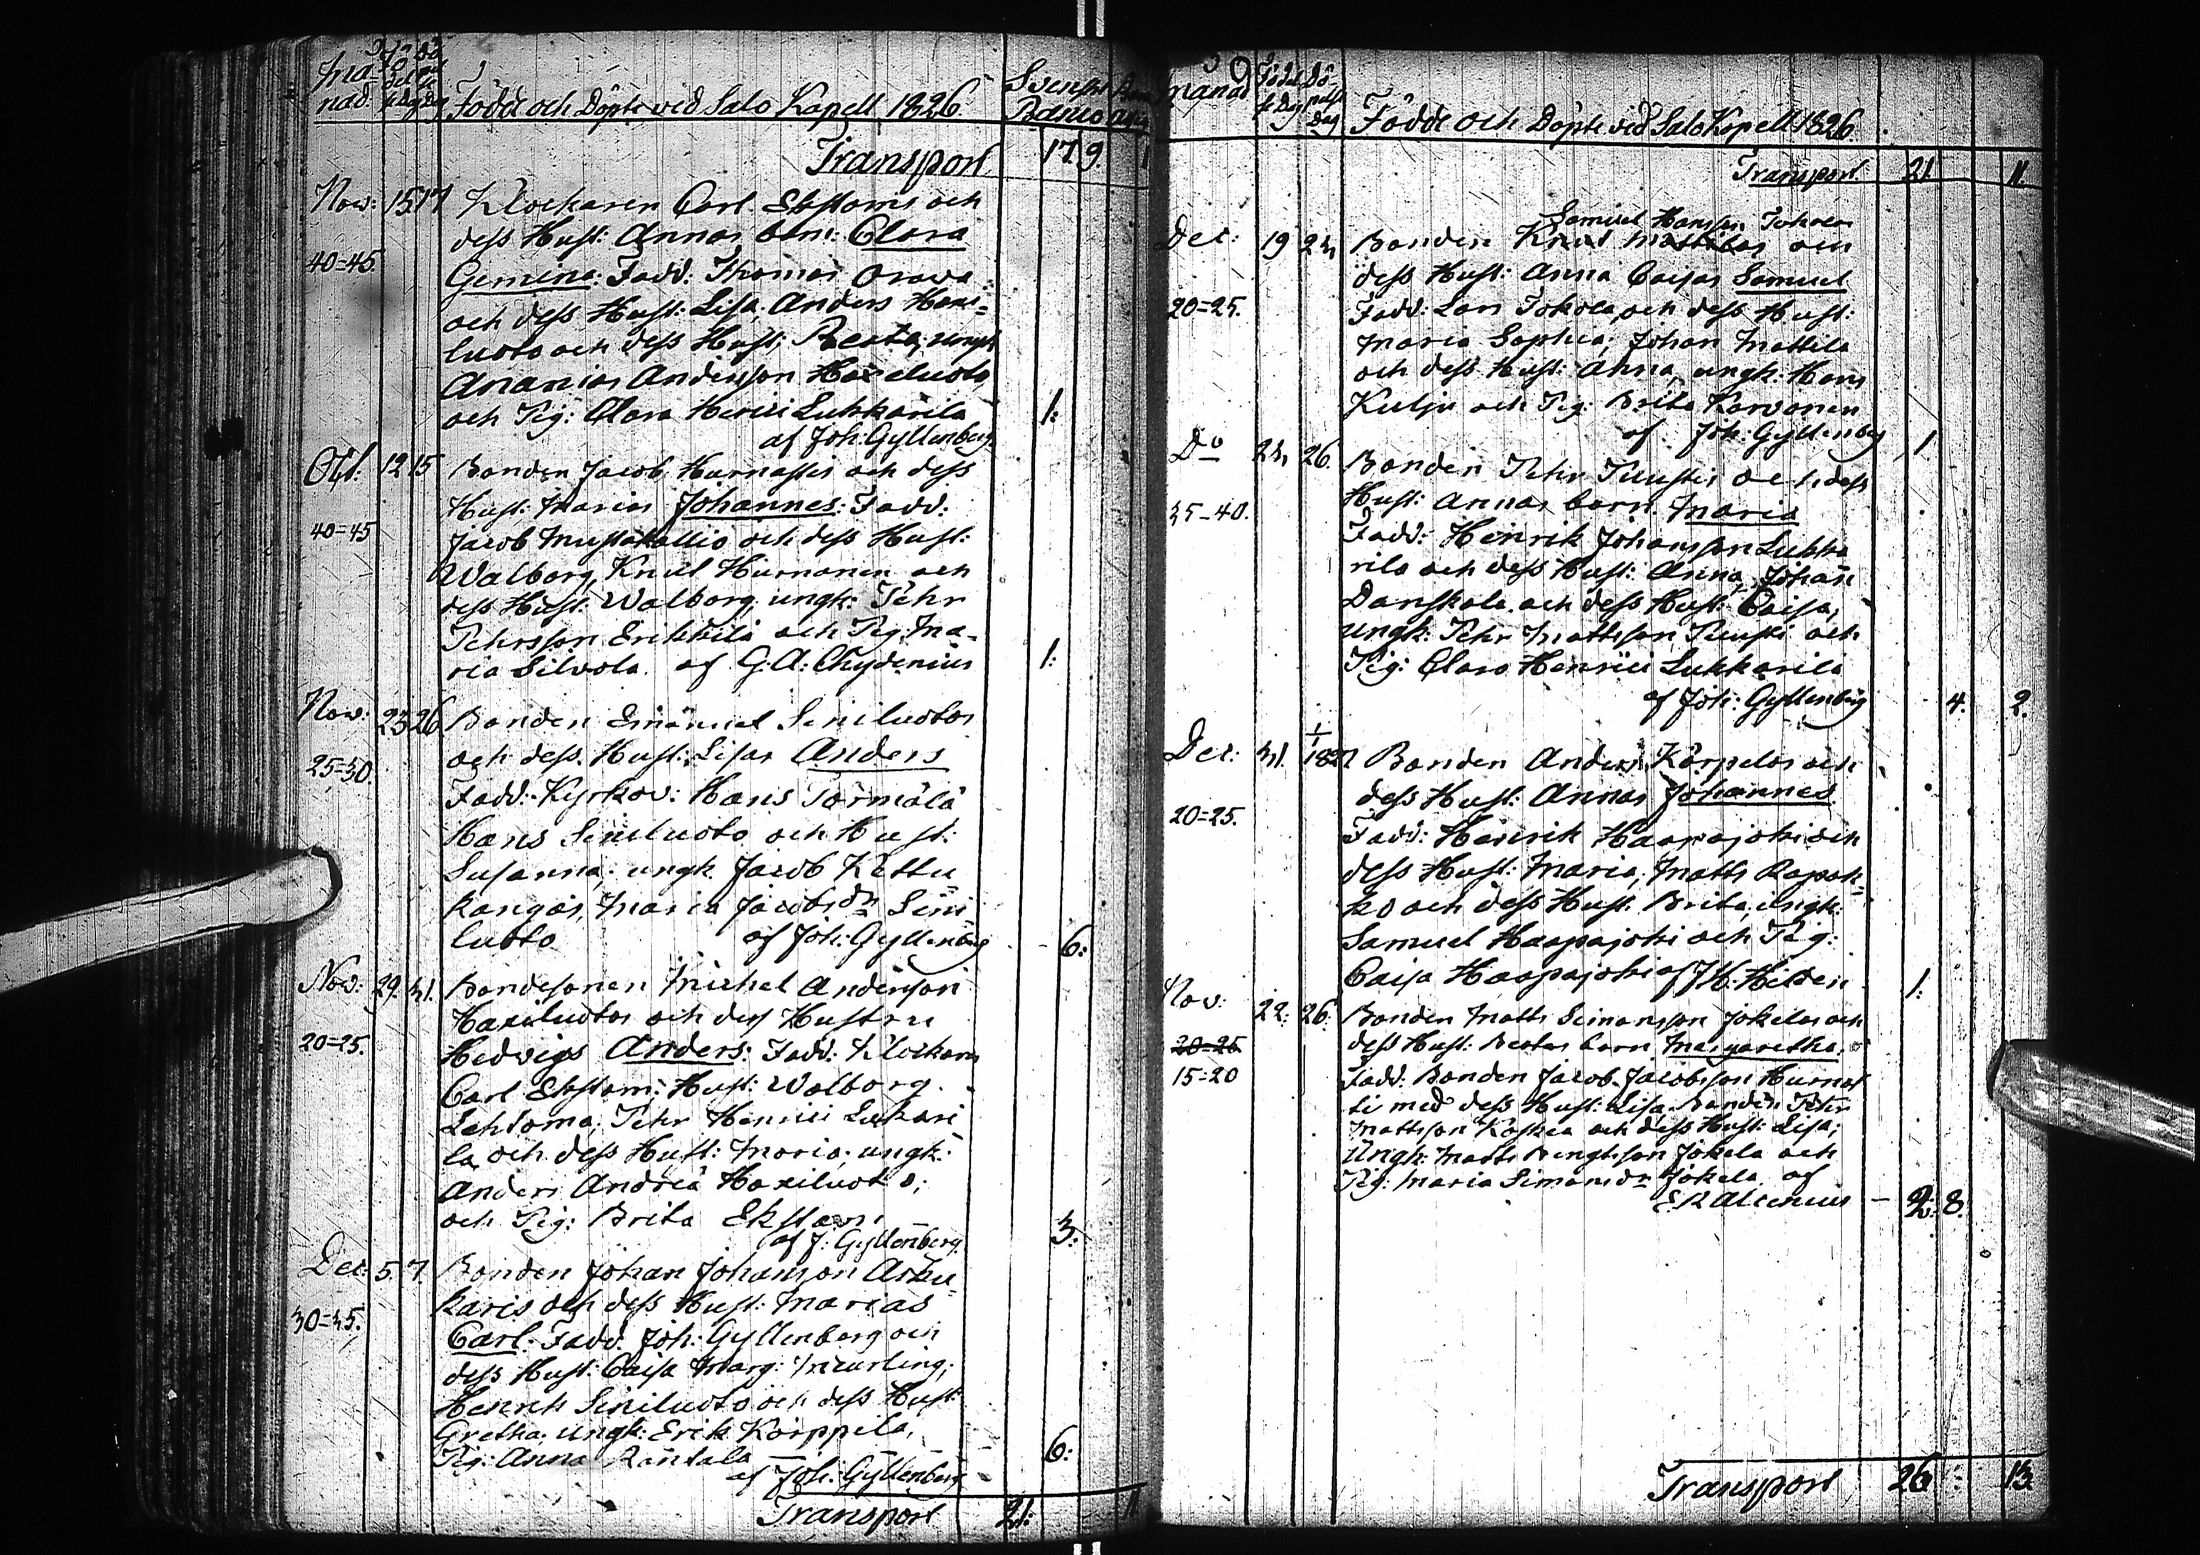 Må-
nad.
Födde och Döpte vid Salo Kapell 1826
Svenskt
Banco
Transport 17. 9. 1
Nov: 15 17 Klockaren Carl Ekströms och
dess Hust: Annas barn: Clara
40=45. Gemina. Fadd: Thomas
och dess Hust: Lisa, Anders Haxi=
luoto och dess Hust: Beata, ungk
Ananias Andersson Haxiluoto
och Pig: Clara Henrici Lukkarila 1:
af Joh: Gyllenberg
Oct: 12 15 Bonden Jacob Hurnasks och dess
Hust: Marias Johannes: Fadd:
40=45 Jacob Mustakallio och dess Hust:
Walborg, Knut Hurnanen och
dess Hust: Walborg, ungk: Pehr
Pehrsson Erikkilä och Pig: Ma-
ria Silvola. af G: A: Chydenius 1:
Nov: 23 26 Bonden Emanuel Siniluotos
och dess Hust: Lisas Anders
25=30. Fadd: Kyrkov: Hans Törmälä
Hans Siniluoto och Hust:
Susanna; ungk Jacob Kettu
kangas, Maria Jacobsdr Sini
luoto af Joh: Gyllenberg 6:
Nov: 29. 31. Bondesonen Michel Andersson
Haxiluotos och dess Hustru
20=25. Hedvigs Anders: Fadd: Klockaren
Carl Ekström, Hust: Walborg
Lehtoma, Pehr Henrici Lukari
la och dess Hust: Maria, ungk:
Anders Andreæ Haxiluoto;
och Pig: Brita Ekström 3:
af J: Gyllenberg.
Dec: 5. 7. Bonden Johan Johansson Asku
karis och dess Hust: Marias
30=35. Carl. Fadd: Joh: Gyllenberg och
dess Hust: Caisa Marg: Meurling;
Henrik Siniluoto och dess Hust:
Gretha; ungk: Erik Körppila,
Pig: Anna Rantala 6:
af Joh: Gyllenberg
Transport 21: 11
Månad
Födde och Döpte vid Salo Kapell 1826.
Transport 21. 11.
Samuel Hansson Johrea
Dec: 19 24 Bonden Knut Mattilas och
dess Hust: Anna Caisas Samuel
20=25. Fadd: Lars Jokela, och dess Hust:
Maria Sophia; Johan Mattila
och dess Hust: Anna, ungk: Hans
Kulju och Pig: Brita Karvonen
af Joh: Gyllenberg 1
Do 24 26. Bonden Pehr Puuskis och dess
Hust: Annas barn Maria
35-40. Fadd: Henrik Johansson Lukka
rila och dess Hust: Anna, Johan
Danskala och dess Hust: Caisa;
Ungk: Pehr Mattsson Puuski och
Pig: Clara Henrici Lukkarila
af Joh: Gyllenberg 4. 2.
Dec: 31. 1/1 1827 Bonden Anders Körpelos och
dess Hust: Annas Johannes
20=25. Fadd: Henrik Haapajoki och
dess Hust: Maria; Matts Rapak=
ko och dess Hust: Brita, ungk:
Samuel Haapajoki och Pig:
Caisa Haapajoki af J H: Hilden 1:
Nov: 22. 26. Bonden Matts Simonsson Jokelas och
20=25 dess Hust: Beatas barn Margaretha.
15=20 Fadd: Bonden Jacob Jacobsson Hurnas
ti med dess Hust: Lisa Bonden Pehr
Mattsson Koskea och dess Hust: Lisa;
Ungk: Matts Bengtsson Jokela och
Pig: Maria Simonsdr Jokela af
E R Alcenius – 2: 8.
Transport 26 : 13.